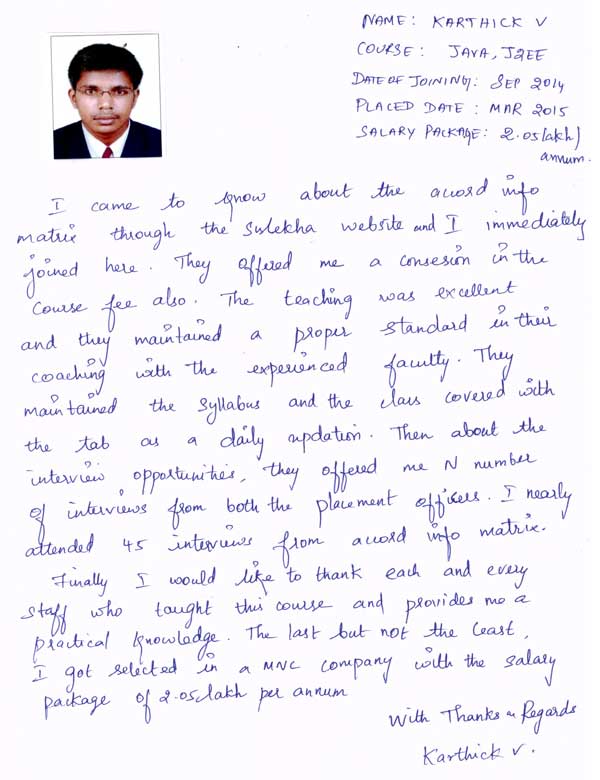 NAME: KARTHICK V
COURSE: JAVA, J2EE
DATE OF JOINING: SEP 2014
PLACED DATE: MAR 2015
SALARY PACKAGE: 2.05lakh/
annum.
I came to know about the accord info
matrix through the Sulekha website and I immediately
joined here. They offered me a consesion in the
course fee also. The teaching was excellent
and they maintained a proper standard in their
coaching with the experienced faculty. They
maintained the syllabus and the class covered with
the tab as a daily updation. Then about the
interview opportunities, they offered me N number
of interviews from both the placement officers. I nearly
attended 45 interviews from accord info matrix.
Finally I would like to thank each and every
staff who taught this course and provides me a
practical knowledge. The last but not the least,
I got selected in a MNC company with the salary
package of 2.05lakh per annum
With Thanks & Regards
Karthick V.